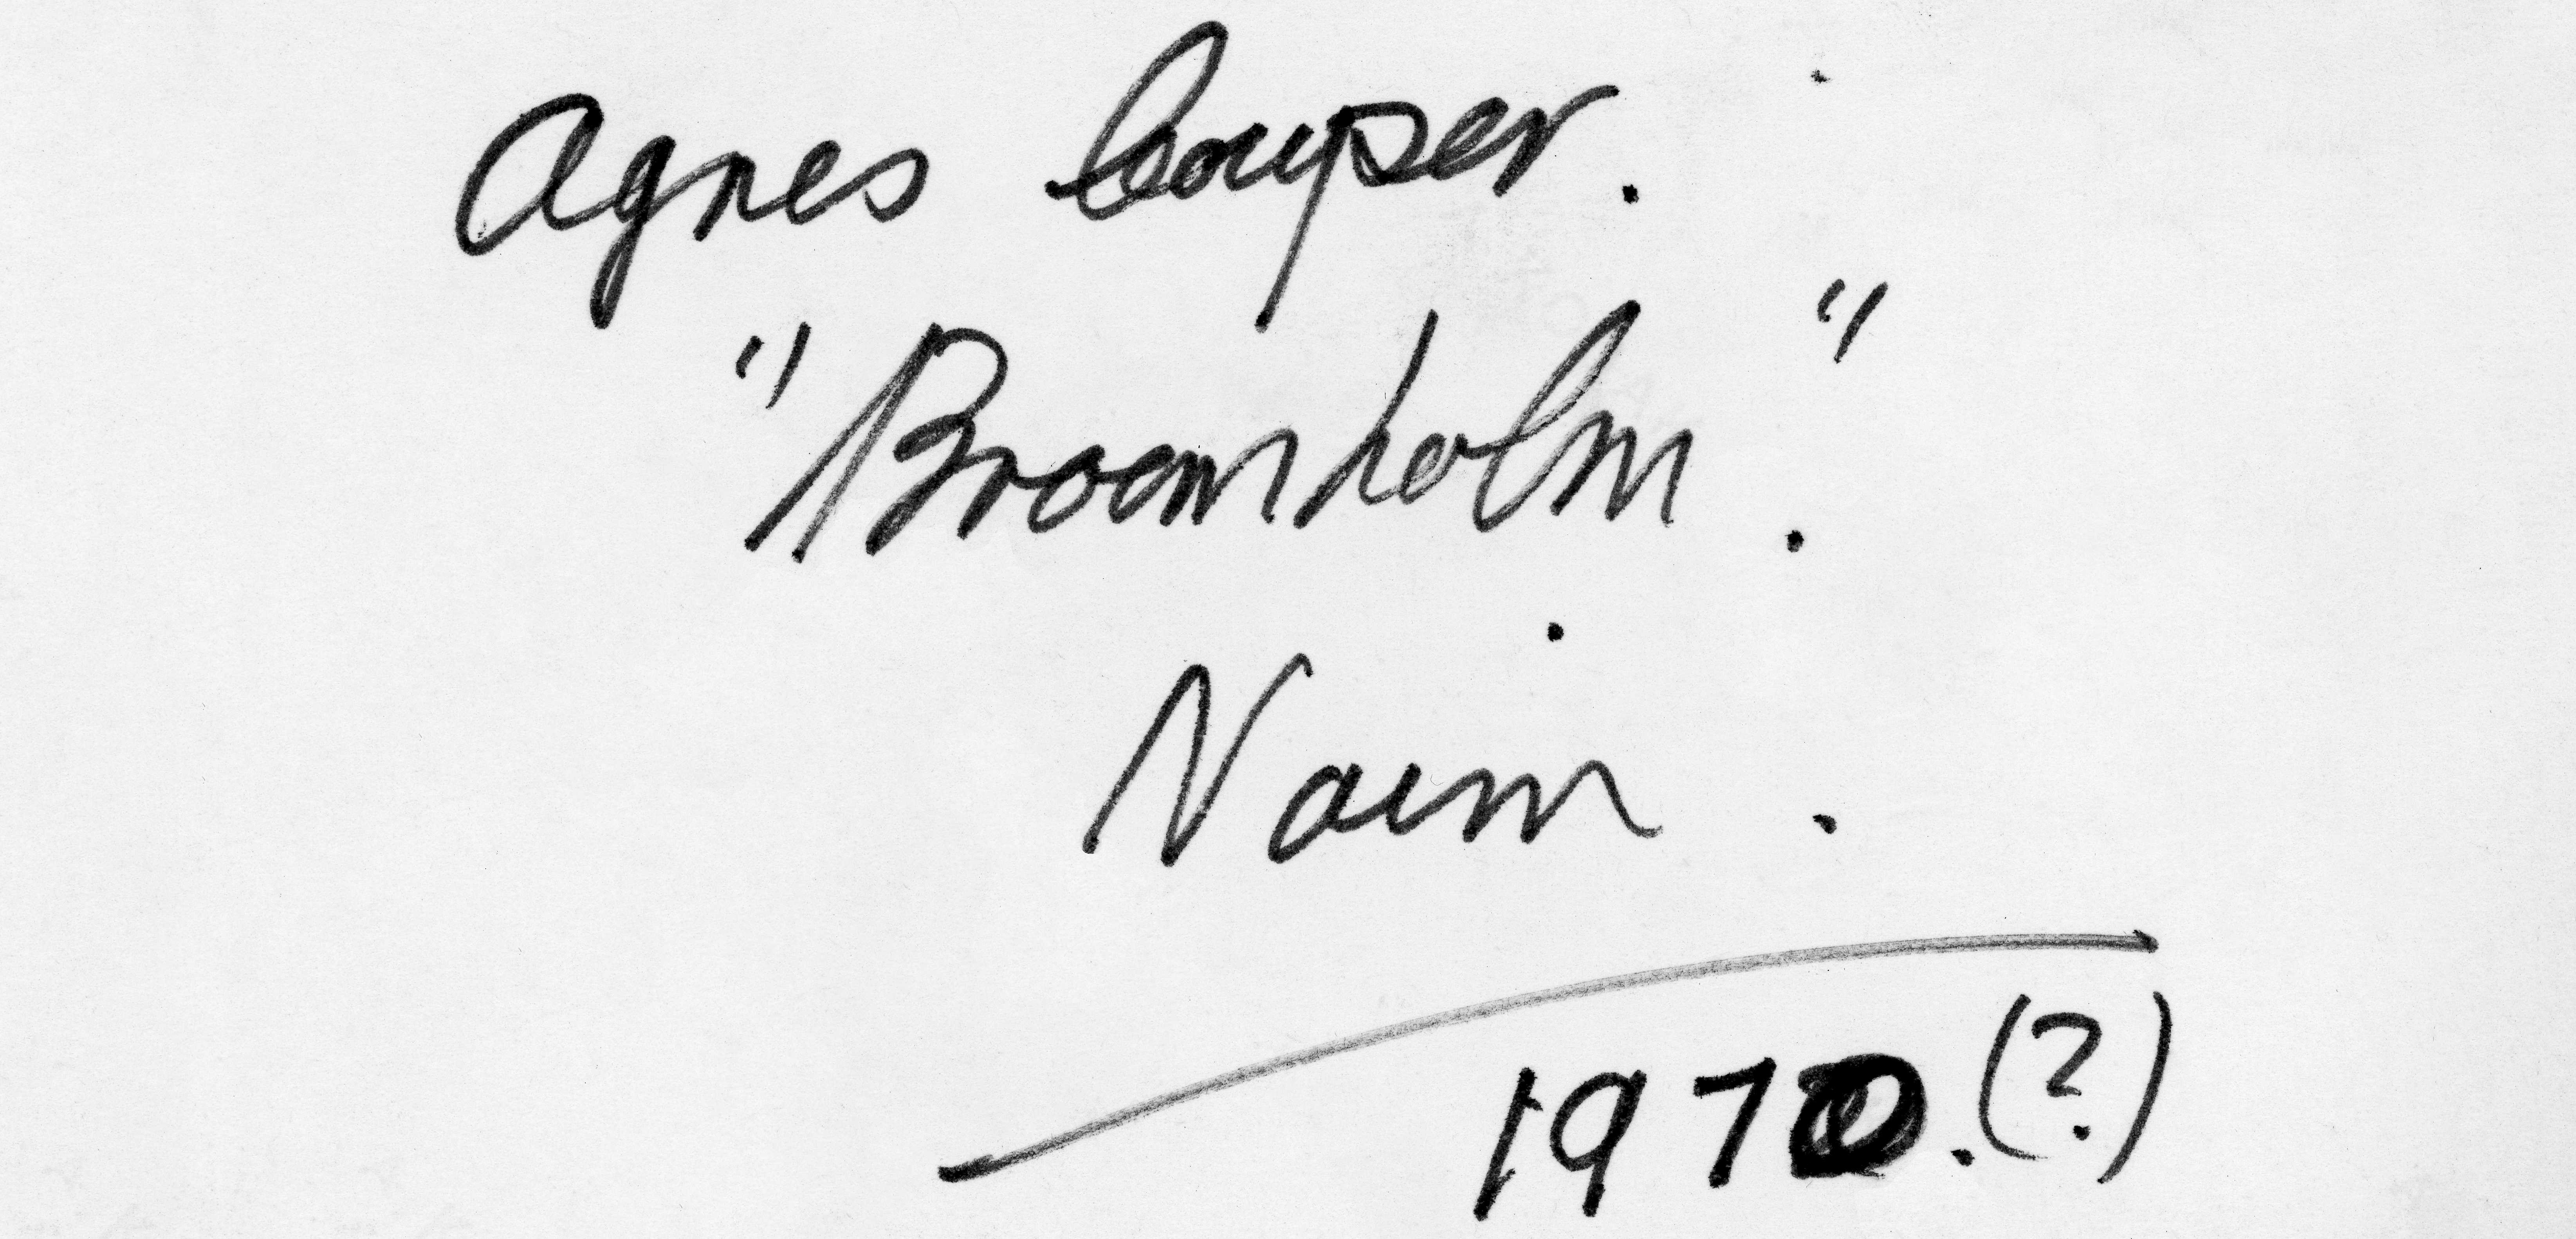 Agnes Cowper.
"Broomholm."
Nairn.
1970.(?)